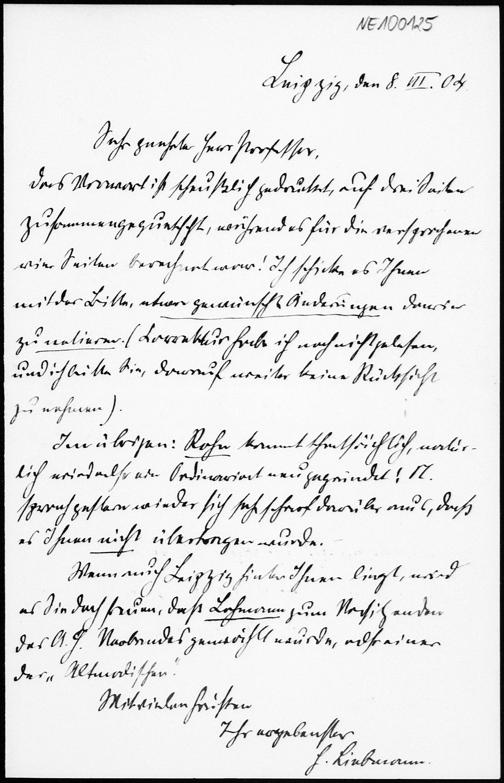 NE100125
Leipzig, den 8. III. 04.
Sehr geehrter Herr Professor,
das Vorwort ist scheußlich gedruckt, auf drei Seiten
zusammengequetscht, während es für die versprochenen
vier Seiten berechnet war! Ich schicke es Ihnen
mit der Bitte, etwa gewünschte Änderungen darin
zu notieren. (Correktur habe ich noch nicht gelesen,
und ich bitte Sie, darauf weiter keine Rücksicht
zu nehmen).
Im übrigen: Rohn kommt thatsächlich, natür-
lich wird also ein Ordinariat neu gegründet! N.
sprach gestern wieder sich sehr scharf darüber aus, daß
es Ihnen nicht übertragen wurde.
Wenn auch Leipzig hinter Ihnen liegt, wird
es Sie doch freuen, daß Lohmann zum Vorsitzenden
des A. H. Verbandes gewählt wurde, also einer
der „Altmodischen".
Mit vielen Grüßen
Ihr ergebenster
H. Liebmann.